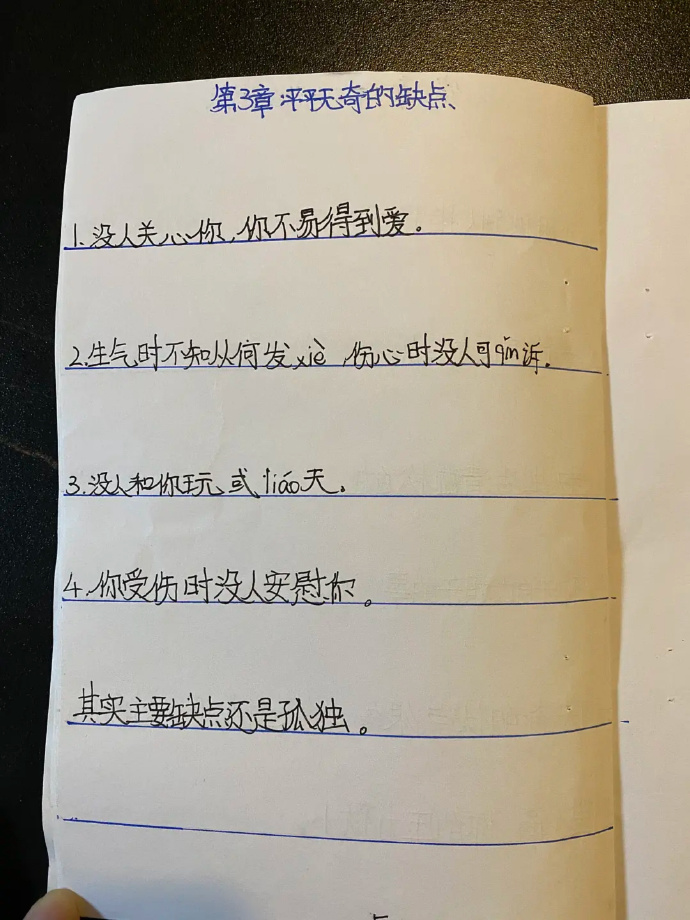 第3章:平平无奇的缺点、
1.没人关心你,你不易得到爱。
2.生气时不知从何发xiè,伤心时没人可qīn诉.
3.没人和你玩或liáo天.
4.你受伤时没人安慰你。
其实主要缺点还是孤独。